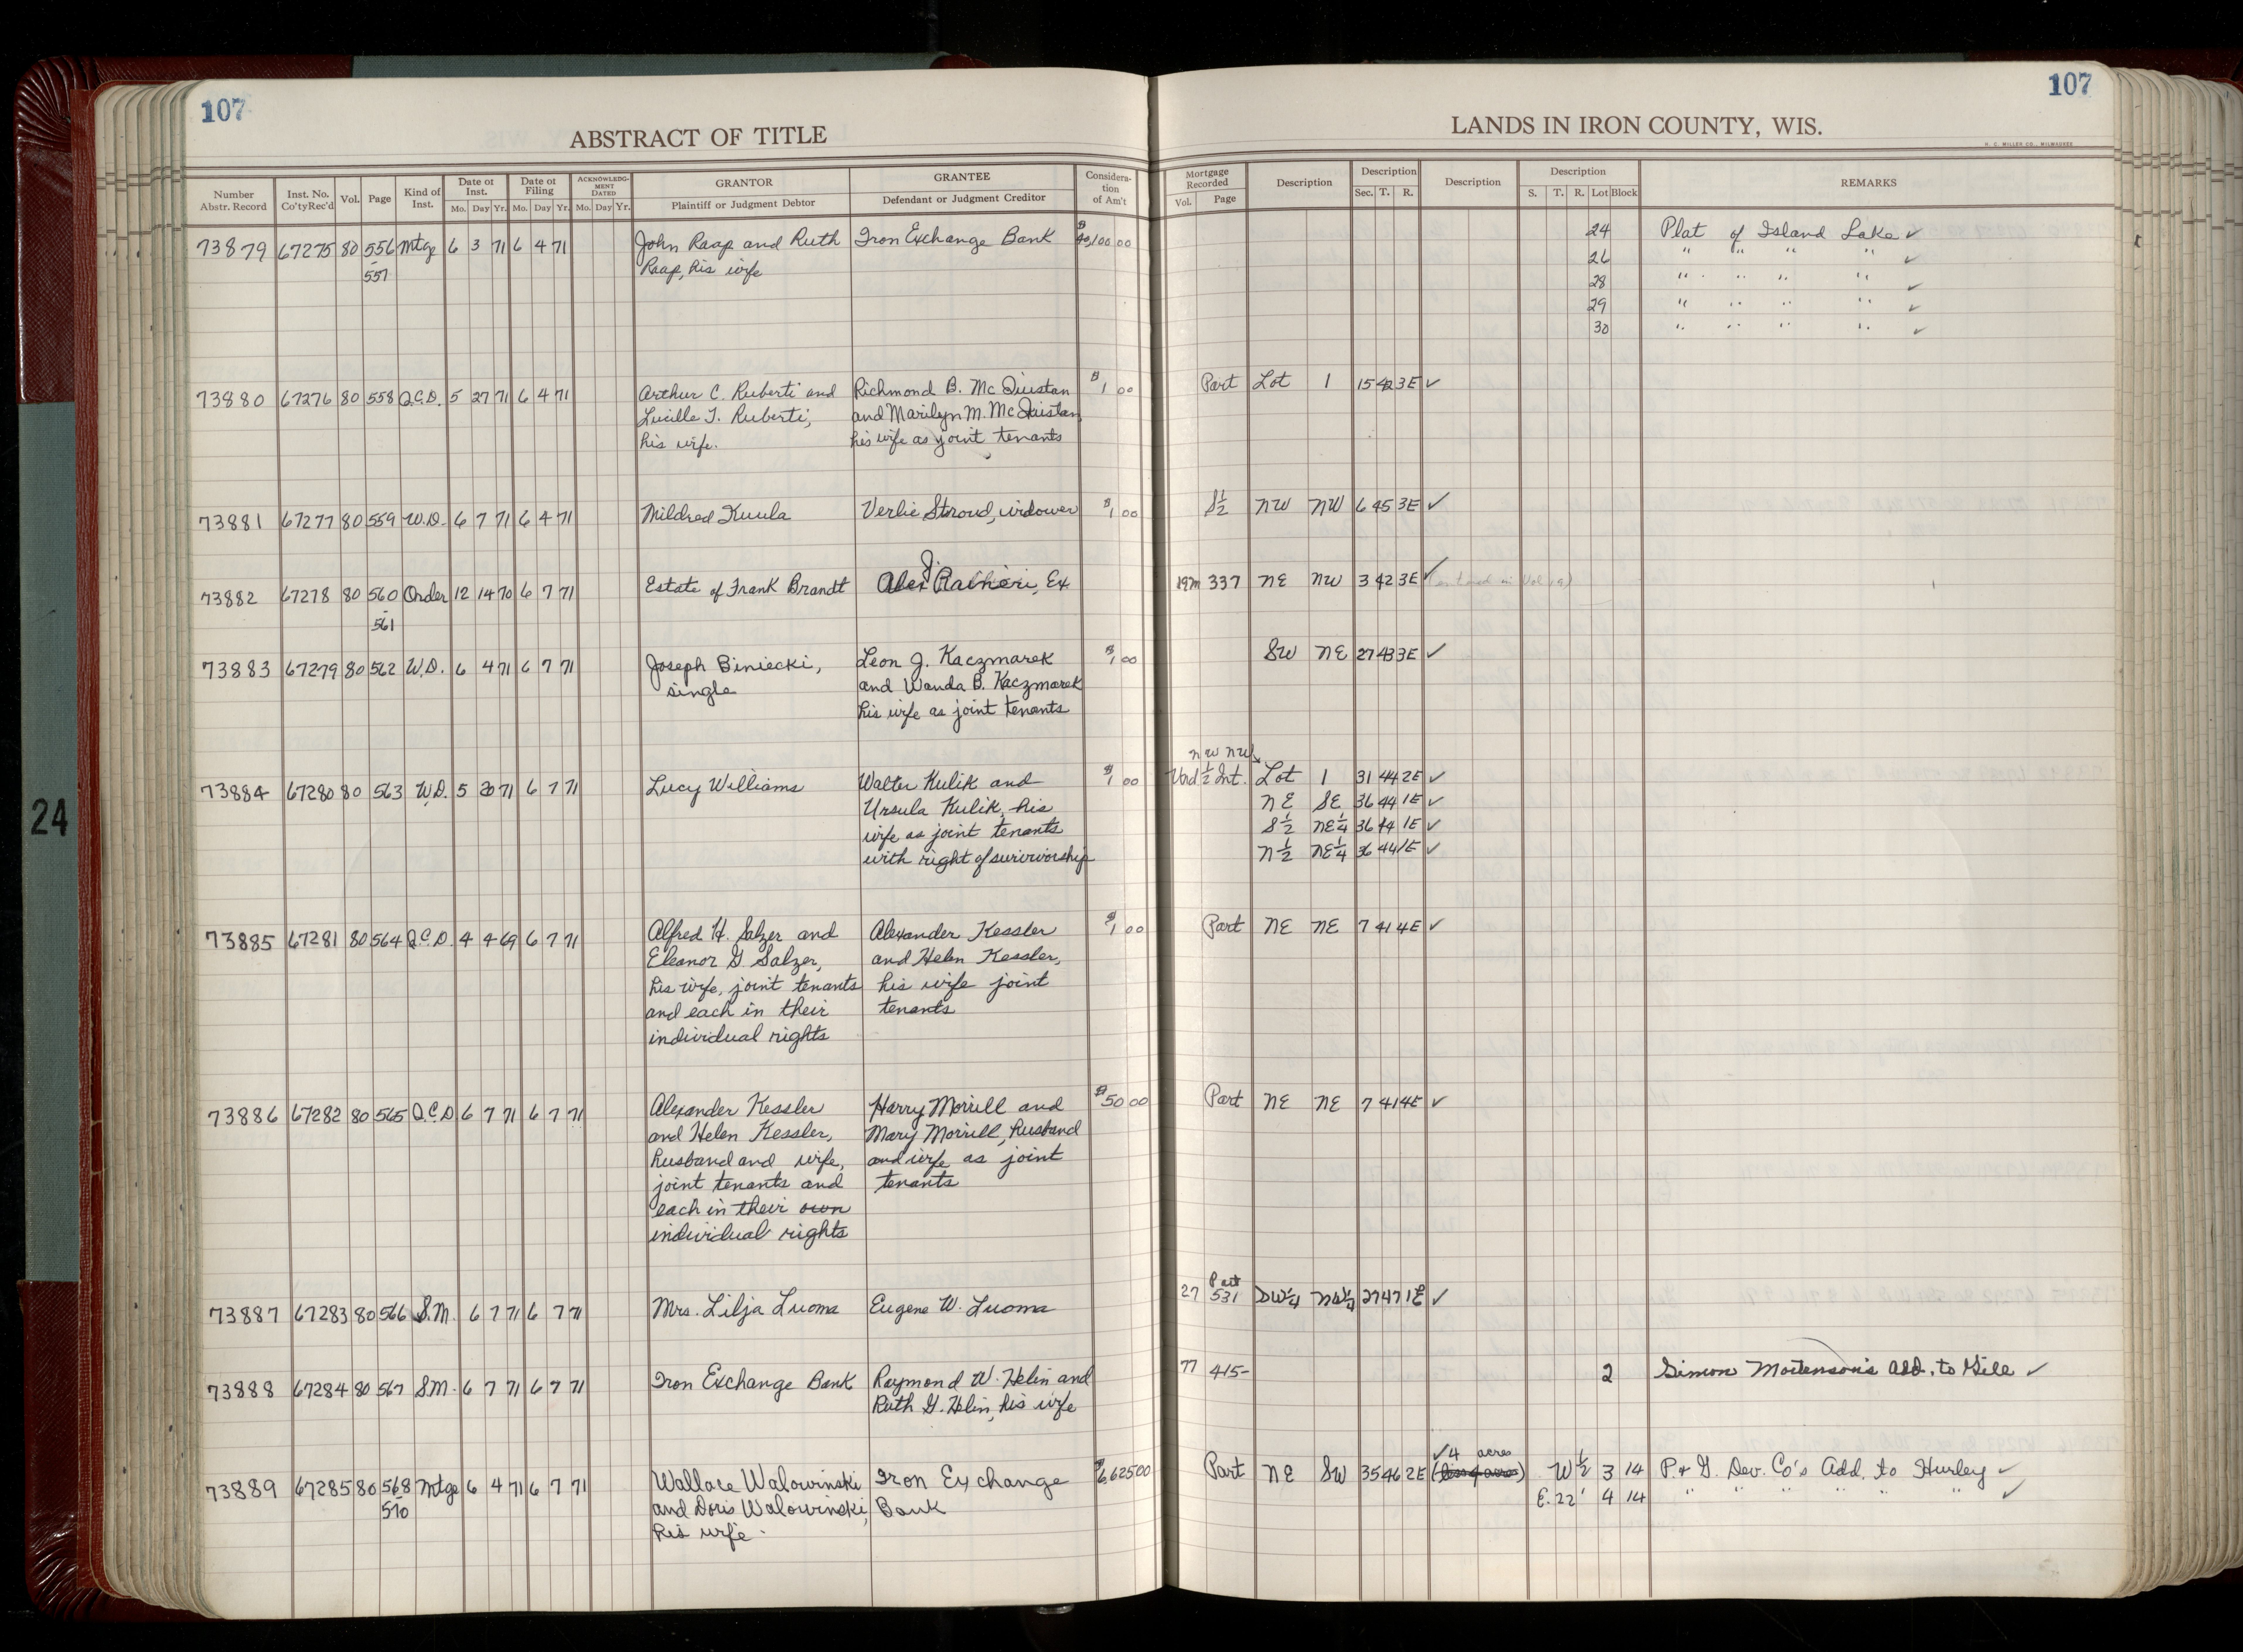 107
ABSTRACT OF TITLE
LANDS IN IRON COUNTY, WIS.
107
H. C. MILLER CO., MILWAUKEE
Number Abstr. Record | Inst. No. Co'ty Rec'd | Vol. | Page | Kind of Inst. | Date of Inst. Mo. Day Yr. | Date of Filing Mo. Day Yr. | ACKNOWLEDGMENT DATED Mo. Day Yr. | GRANTOR Plaintiff or Judgment Debtor | GRANTEE Defendant or Judgment Creditor | Consideration of Am't | Mortgage Recorded Vol. Page | Description | Description Sec. T. R. | Description | Description S. T. R. Lot Block | REMARKS
73879 67275 80 556 Mtge 6 3 71 6 4 71 John Raap and Ruth Iron Exchange Bank 24 Plat of Island Lake ✓
557 Raap, his wife 26 " " " " ✓
28 " " " " ✓
29 " " " " ✓
30 " " " " ✓
73880 67276 80 558 Q.C.D. 5 27 71 6 4 71 Arthur C. Ruberti and Richmond B. McQuistan $1 00 Part Lot 1 15 42 3E ✓
Lucille T. Ruberti, and Marilyn M. McQuistan
his wife. his wife as joint tenants
73881 67277 80 559 W.D. 6 7 71 6 4 71 Mildred Kuula Verlie Stroud, widower $1 00 S½ NW NW 6 45 3E ✓
73882 67278 80 560 Order 12 14 70 6 7 71 Estate of Frank Brandt Alex J. Raineri, Ex 19m 337 NE NW 3 42 3E ✓
561
73883 67279 80 562 W.D. 6 4 71 6 7 71 Joseph Biniecki, Leon J. Kaczmarek $1 00 SW NE 27 43 3E ✓
single and Wanda B. Kaczmarek
his wife as joint tenants
NW NW
73884 67280 80 563 W.D. 5 20 71 6 7 71 Lucy Williams Walter Kulik and $1 00 Und ½ Int. Lot 1 31 44 2E ✓
Ursula Kulik, his NE SE 36 44 1E ✓
wife as joint tenants S½ NE¼ 36 44 1E ✓
with right of survivorship N½ NE¼ 36 44 1E ✓
73885 67281 80 564 Q.C.D. 4 4 69 6 7 71 Alfred H. Salzer and Alexander Kessler $1 00 Part NE NE 7 41 4E ✓
Eleanor G. Salzer, and Helen Kessler,
his wife, joint tenants his wife joint
and each in their tenants
individual rights
73886 67282 80 565 Q.C.D 6 7 71 6 7 71 Alexander Kessler Harry Morrill and $50 00 Part NE NE 7 41 4E ✓
and Helen Kessler, Mary Morrill, husband
husband and wife, and wife as joint
joint tenants and tenants
each in their own
individual rights
Part
73887 67283 80 566 S.M. 6 7 71 6 7 71 Mrs. Lilja Luoma Eugene W. Luoma 27 531 NW¼ 27 47 1E ✓
73888 67284 80 567 S.M. 6 7 71 6 7 71 Iron Exchange Bank Raymond W. Helin and 77 415- 2 Simon Mortenson's Add. to Gile ✓
Ruth G. Helin, his wife
✓4 acres
73889 67285 80 568 Mtge 6 4 71 6 7 71 Wallace Walowinski Iron Exchange $6,625 00 Part NE SW 35 46 2E (less 4 acres) W½ 3 14 P. & G. Dev. Co's Add. to Hurley ✓
570 and Doris Walowinski, Bank E. 22' 4 14 " " " " " " ✓
his wife.
24